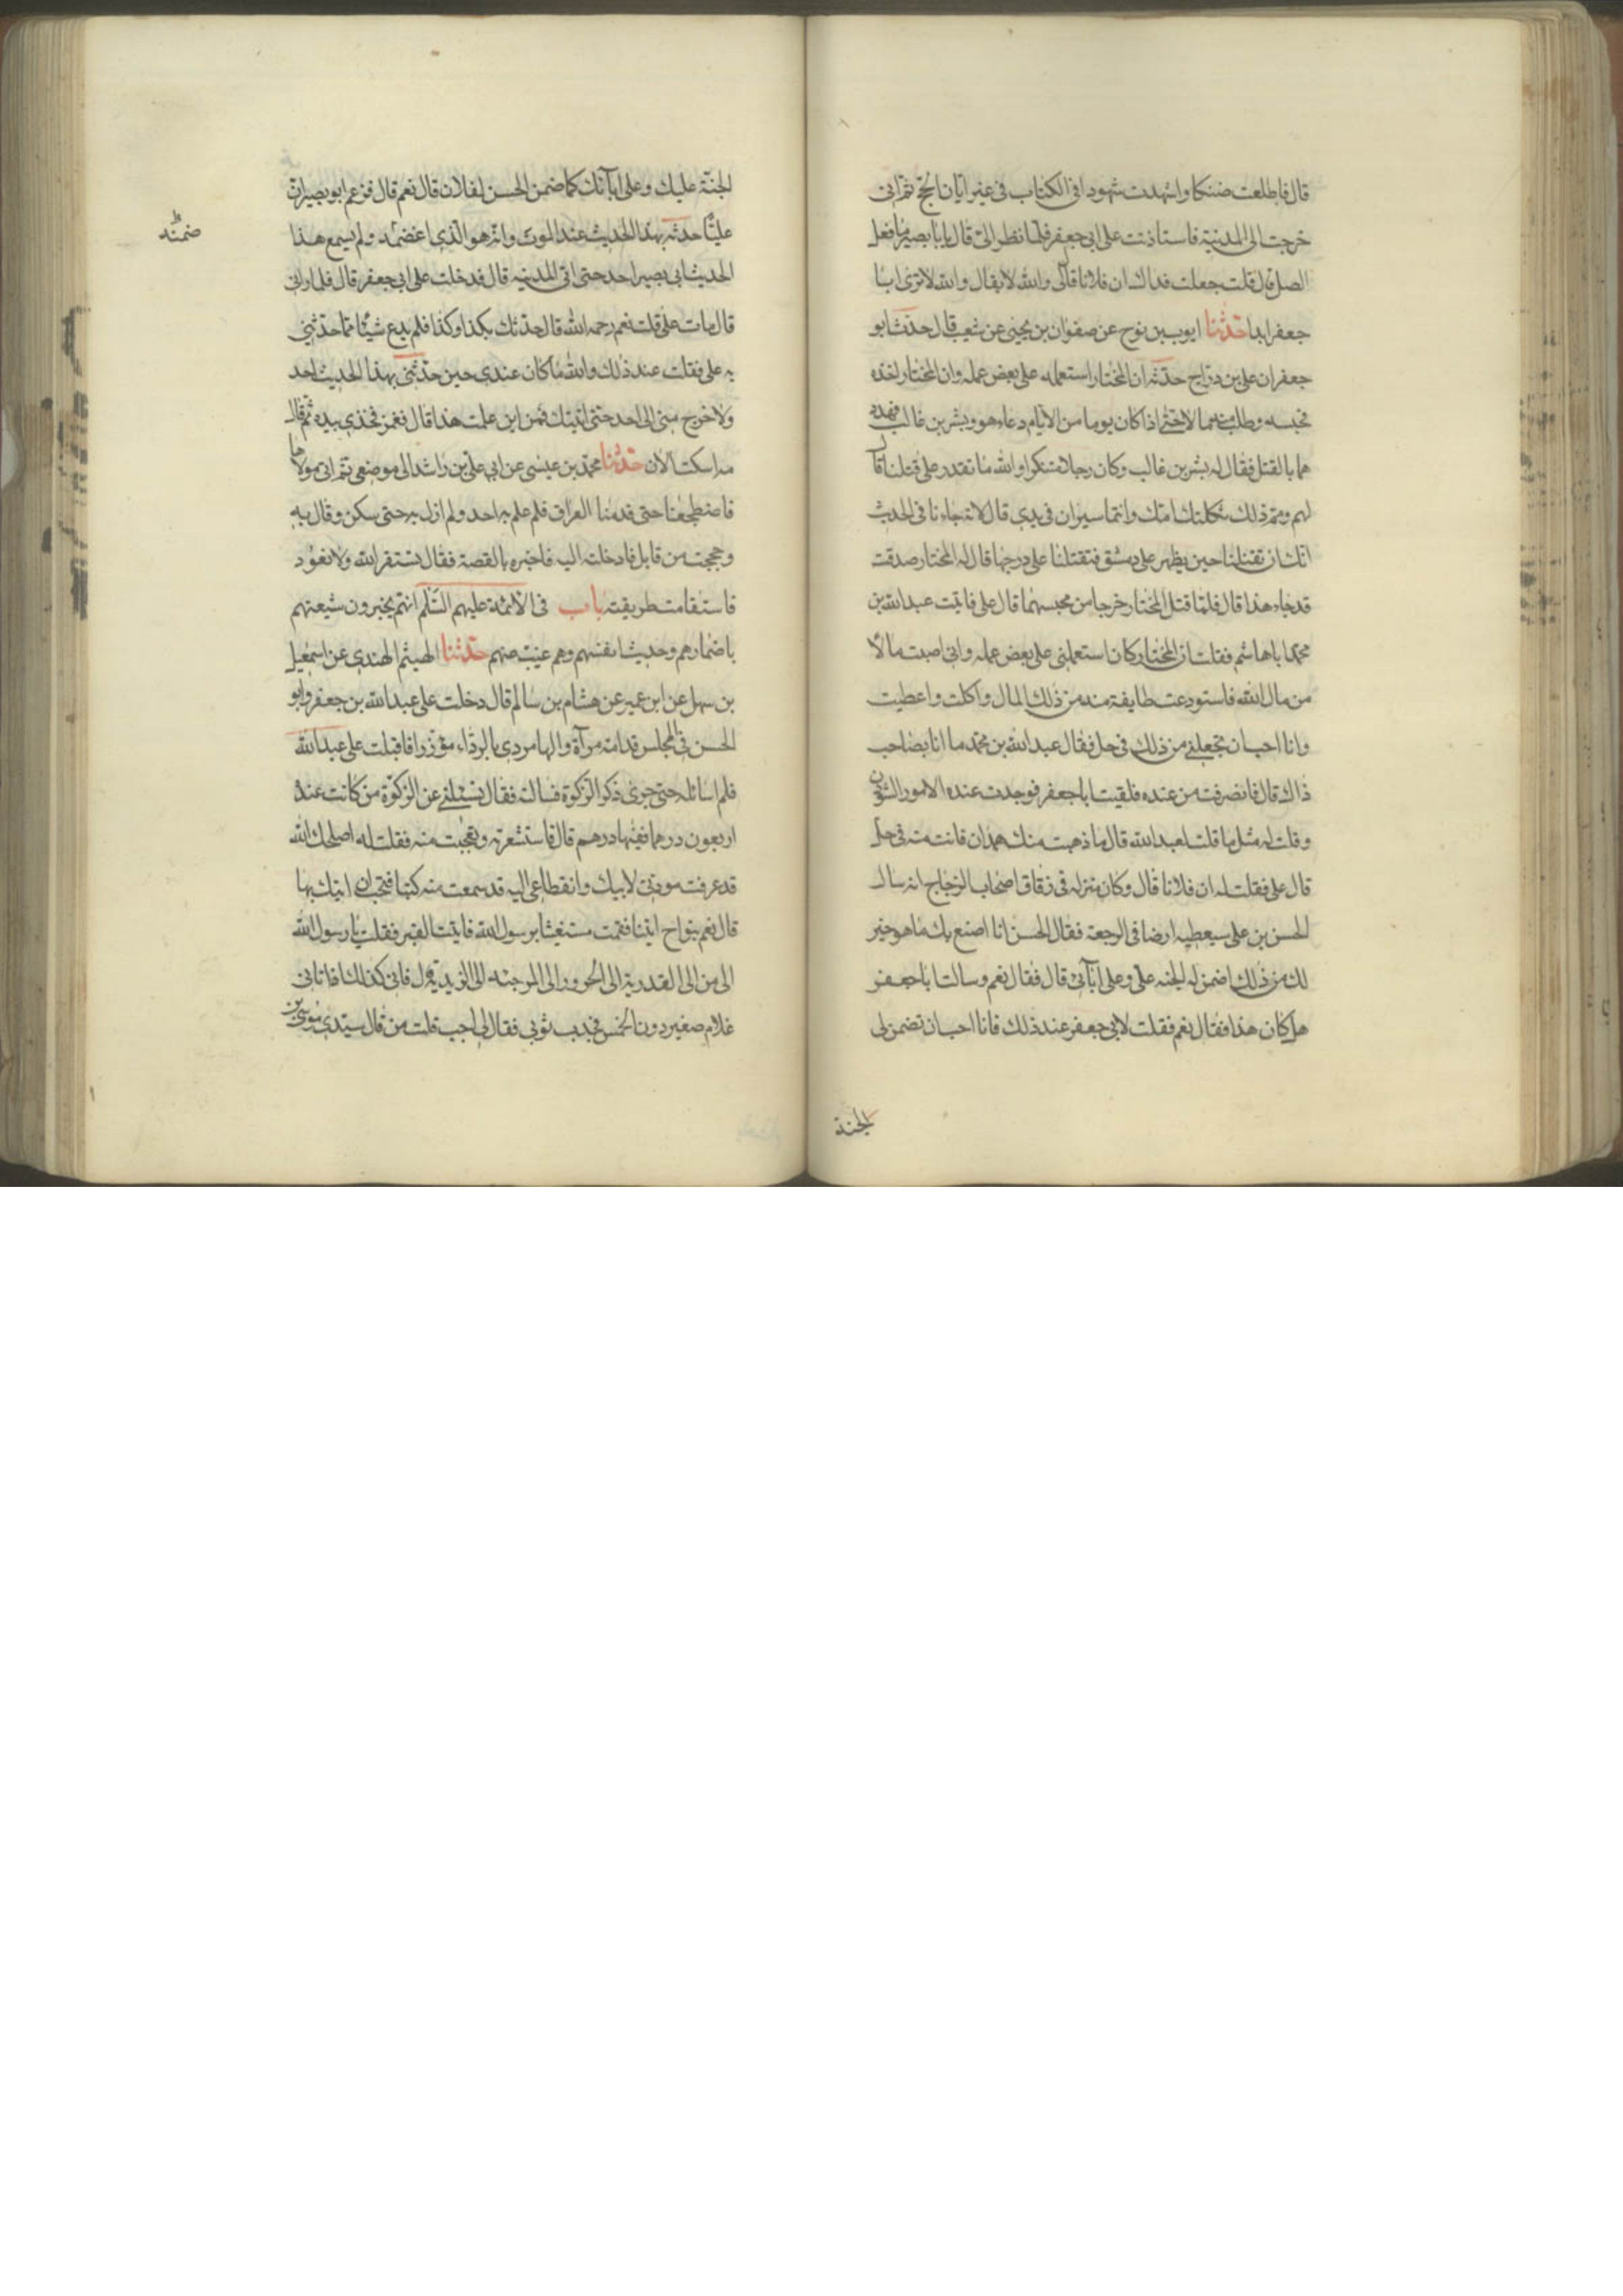 قال فاطلعت ضننكا واشهدت شهودا فى الكتاب فى غير ابان الحج ثم انى
خرجت الى المدينة فاستاذنت على ابى جعفر فلما نظر الىّ قال يابا بصير ما فعل
قال قلت جعلت فداك ان فلانا قال لى والله لا يقال والله لا ترى ابا
جعفر ابدا حدثنا ايوب بن نوح عن صفوان بن يحيى عن شعيب قال حدثنا ابو
جعفر ان على بن دراج حدثه ان المختار استعمله على بعض عمله وان المختار اخذه
فحبسه وطلب منهما لا حتى اذا كان يوما من الايام دعاه هو وبشر بن غالب فهدد
هما بالقتل فقال له بشر بن غالب وكان رجلا متنكرا والله ما تقدر على قتلنا قال
لهم ومم ذلك ثكلتك امك وانتما سيران فى يدى قال لانه جاءنا فى الحديث
انك ان تقتلنا حين يظهر على دمشق فتقتلنا على درجها قال له المختار صدقت
قد جاء هذا قال فلما قتل المختار خرجا من محبسهما قال على فاتيت عبد الله بن
محمد اباهاشم فقلت ان المختار كان استعملنى على بعض عمله وانى اصبت مالا
من مال الله فاستودعت طايفة منه من ذلك المال واكلت واعطيت
وانا احب ان تجعلنى من ذلك فى حل فقال عبد الله بن محمد ما انا بصاحب
ذاك قال فانصرفت من عنده فلقيت ابا جعفر فوجدت عنده الامور
وقلت له مثل ما قلت لعبد الله قال ما ذهبت منك همدان فانت منه فى حل
قال على فقلت له ان فلانا قال وكان منزله فى زقاق اصحاب الزجاج انه سال
الحسن بن على سيعطيه ارضا فى الرجعة فقال الحسن انا اصنع بك ما هو خير
لك من ذلك اضمن له الجنه على وعلى آبائى قال فقال نعم وسالت ابا جعفر
هل كان هذا فقال نعم فقلت لابى جعفر عند ذلك فانا احب ان تضمن لى
الجنة
الجنة عليك وعلى ابآئك كما ضمن الحسن لفلان قال نعم قال فزعم ابو بصير انّ
عليّا حدثه بهذا الحديث عند الموت وانه هو الذى اغضمه ولم يسمع هذا
ضمنه
الحديث ابى بصير احد حتى اتى المدينه قال فدخلت على ابى جعفر قال فلما رانى
قال مات على قلت نعم رحمه الله قال حدثك بكذا وكذا فلم يدع شيئا مما حدثنى
به على فقلت عند ذلك والله ما كان عندى حين حدثنى بهذا الحديث احد
ولا خرج منى الى احد حتى اتيتك فمن اين علمت هذا قال فغمز فخذى بيده ثم قال
مه اسكت الان حدثنا محمد بن عيسى عن ابى على بن راشد الى موضعى ثم انى مولاها
فاضطجعنا حتى قدمنا العراق فلم علم به احد ولم ازل به حتى سكن وقال به
وحججت من قابل فادخلته اليه فاخبره بالقصة فقال تستغفر الله ولا تعود
فاستقامت طريقته باب فى الائمة عليهم السّلم انهم يخبرون شيعتهم
باضمارهم وحديث انفسهم وهم غيب عنهم حدثنا الهيثم الهندى عن اسمعيل
بن سهل عن ابن عمير عن هشام بن سالم قال دخلت على عبد الله بن جعفر وابو
الحسن فى المجلس قدامه مرآة والها مردى بالرداء مؤزرا فاقبلت على عبد الله
فلم اسائله حتى جرى ذكر الزكوة فسالته فقال تسئلنى عن الزكوة من كانت عنده
اربعون درهما ففيها درهم قال فاستشعرته وتعجبت منه فقلت له اصلحك الله
قد عرفت مودتى لابيك وانقطاعى اليه قد سمعت منه كتبا فتحب ان اتيك بها
قال نعم بنواخ ايتنا فقمت مستغيثا برسول الله فاتيت القبر فقلت يا رسول الله
الى من الى القدرية الى الحرور الى المرجئه الى الزيدية قال فانى كذلك اذ اتانى
غلام صغير دون الخمس فجذب ثوبى فقال لى اجب قلت من قال سيدى موسى بن